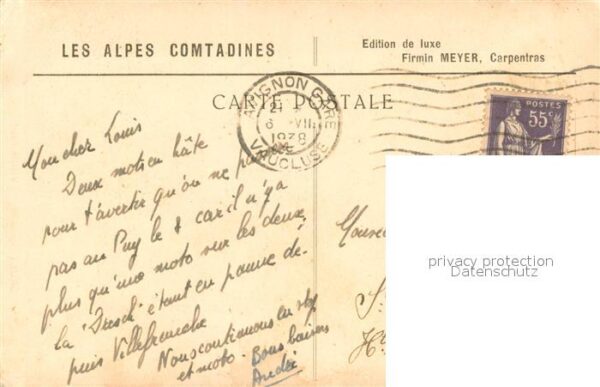 LES ALPES COMTADINES
Edition de luxe
Firmin MEYER, Carpentras
CARTE POSTALE
AVIGNON GARE
21
6 VII
1938
VAUCLUSE
POSTES
55c
Mon cher Louis
Deux mots en hâte
pour t'avertir qu'on ne
pas au Puy le car il n'y a
plus qu'une moto sur les deux
la "Dresch" étant en panne de-
puis Villefranche
Nous continuons en stop
et moto. Bons baisers
André
Monsieu
privacy protection
Datenschutz